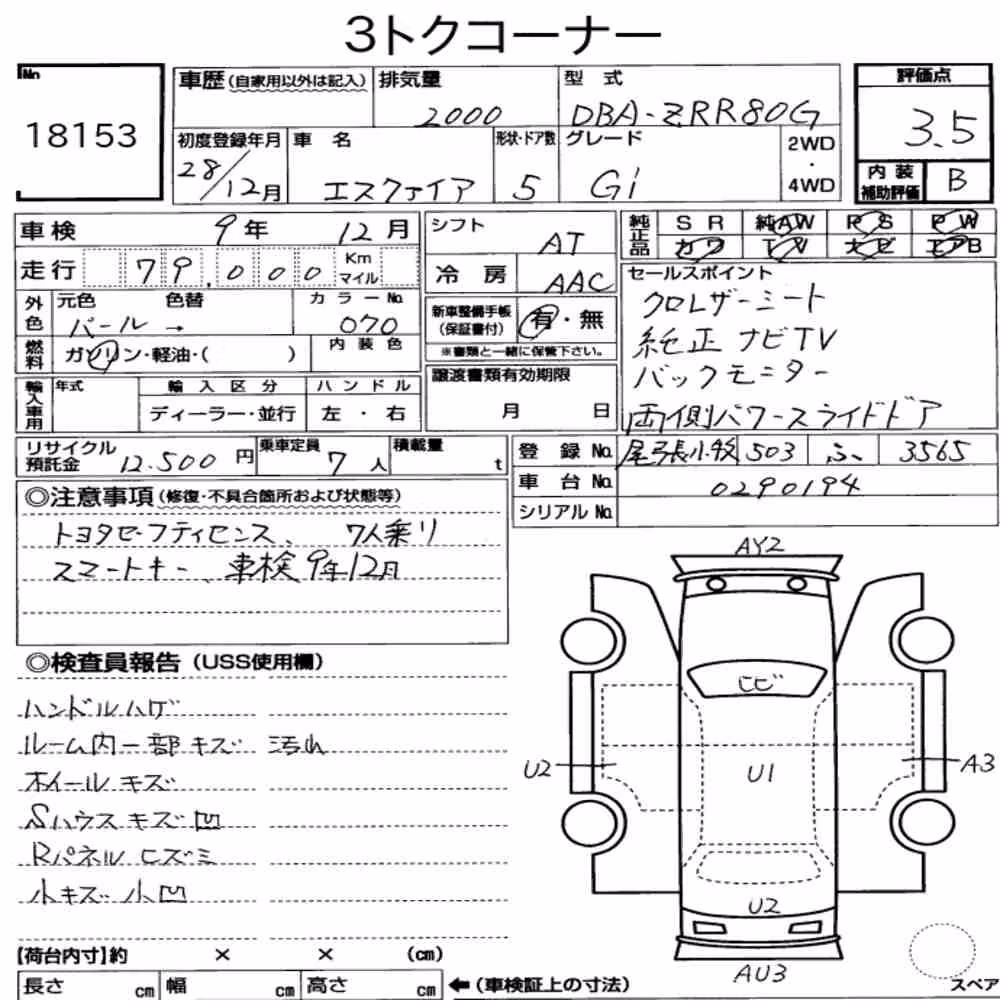 3トクコーナー
No
18153
車歴(自家用以外は記入)
排気量
2000
型 式
DBA-ZRR80G
評価点
3.5
初度登録年月
28/12月
車 名
エスクァイア
形状・ドア数
5
グレード
Gi
2WD
・
4WD
内 装
補助評価
B
車検
9年 12月
シフト
AT
純正品
S R
純AW
P S
P W
カワ
T V
ナビ
エアB
走行
79,000
Km
マイル
冷 房
AAC
セールスポイント
クロレザーシート
純正 ナビTV
バックモニター
両側パワースライドドア
外色
元色
色替
パール →
カラーNo.
070
新車整備手帳
(保証書付)
有・無
※書類と一緒に保管下さい。
燃料
ガソリン・軽油・( )
内装色
輸入車用
年式
輸入区分
ディーラー・並行
ハンドル
左 ・ 右
譲渡書類有効期限
月 日
リサイクル
預託金
12.500 円
乗車定員
7 人
積載量
t
登 録 No.
尾張小牧
503
ふ
3565
車 台 No.
0290194
シリアル No.
◎注意事項(修復・不具合箇所および状態等)
トヨタセーフティセンス、 7人乗り
スマートキー、車検9年12月
◎検査員報告(USS使用欄)
ハンドルハゲ
ルーム内一部キズ 汚れ
ホイールキズ
Sハウスキズ凹
Rパネルヒズミ
小キズ小凹
AY2
ヒビ
U2
U1
A3
U2
AU3
スペア
【荷台内寸】約 × × (cm)
長さ cm
幅 cm
高さ cm
←(車検証上の寸法)